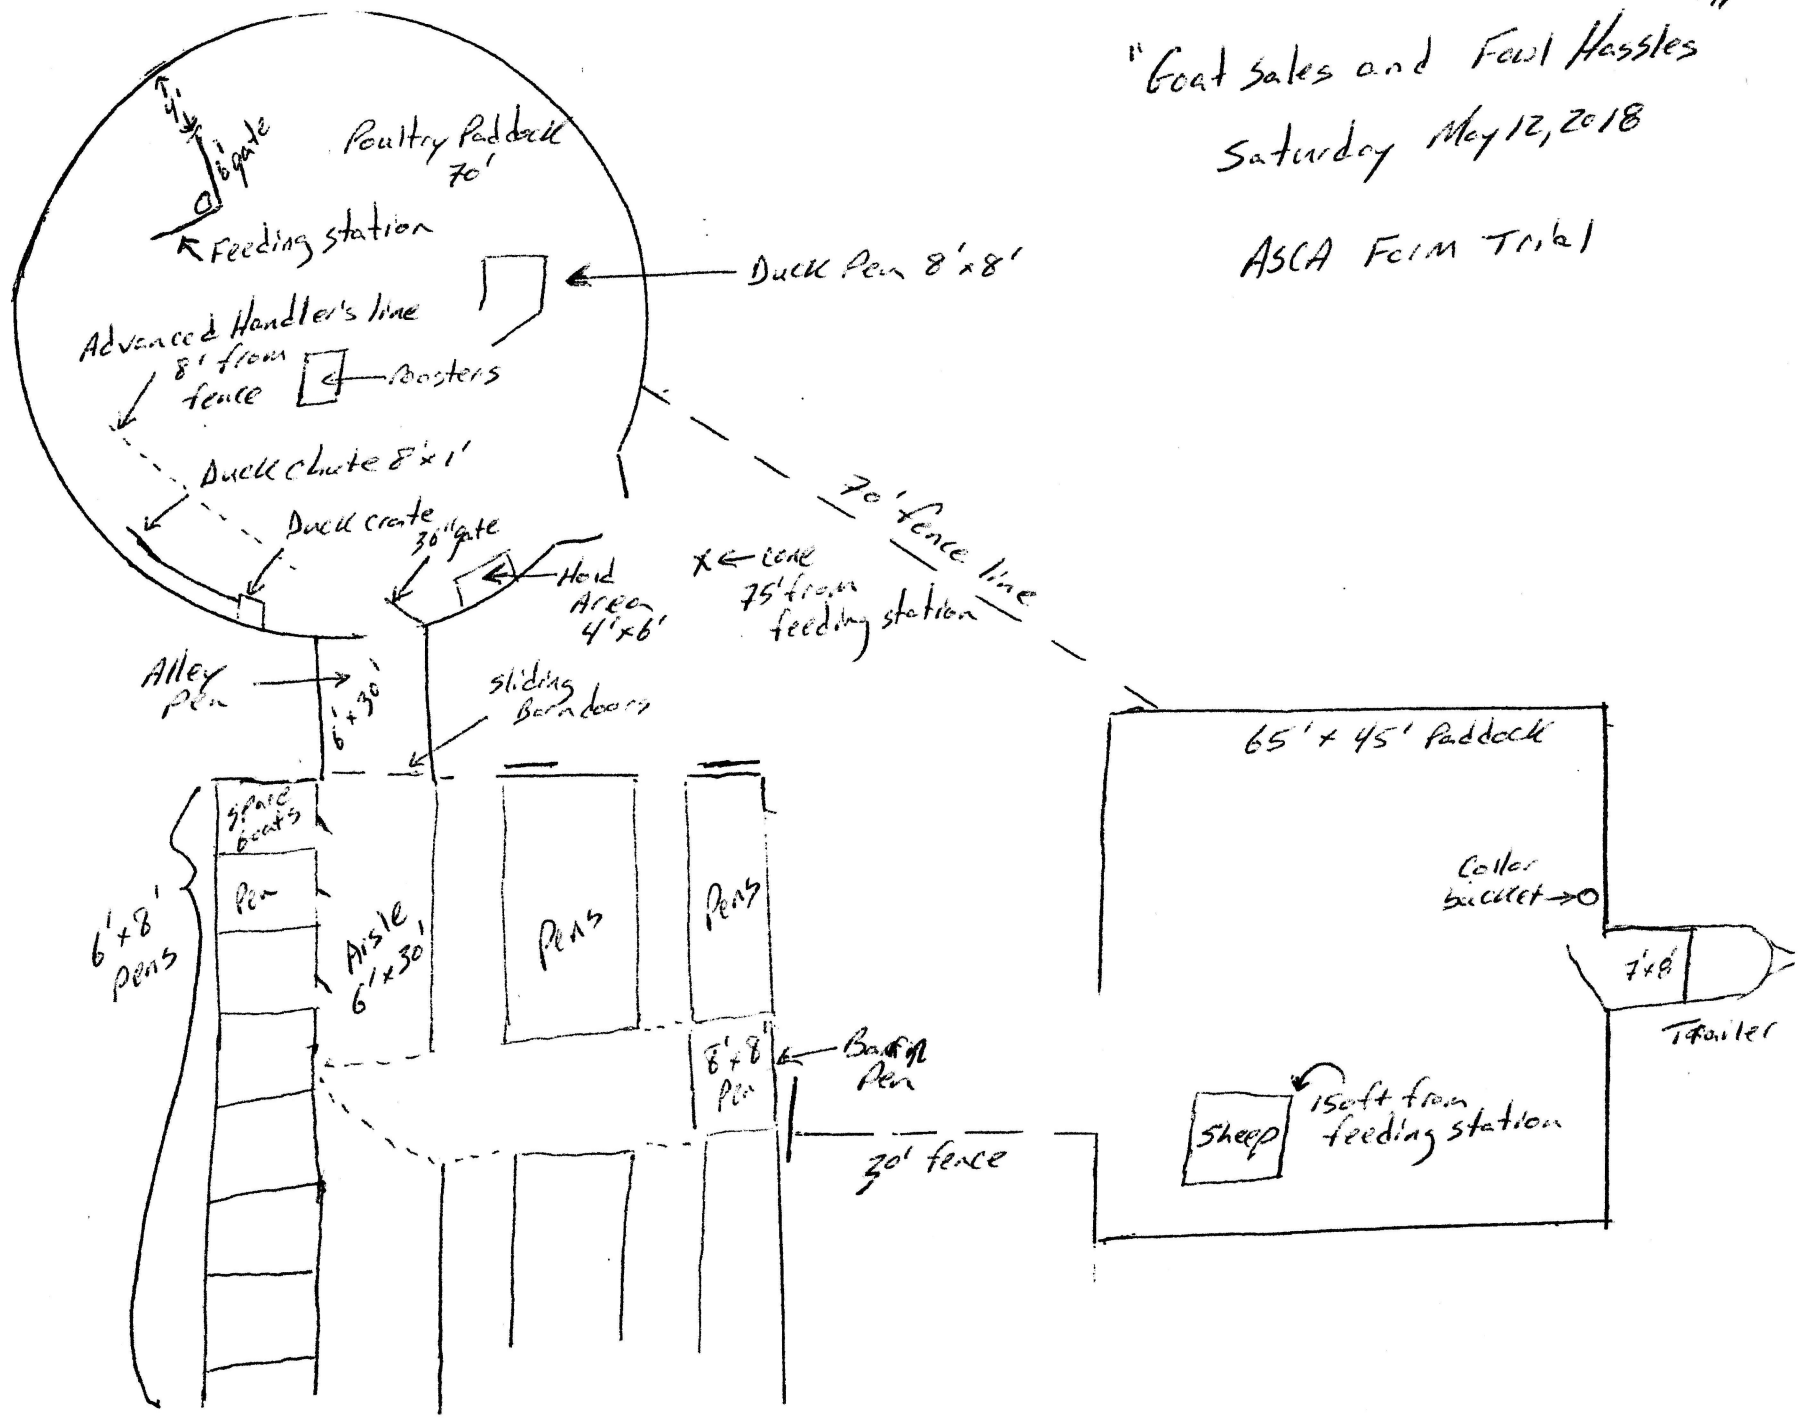 "Goat Sales and Fowl Hassles"
Saturday May 12, 2018
ASCA Farm Trial
4'
6' gate
Poultry Paddock
70'
Feeding station
Duck Pen 8'x8'
Advanced Handler's line
8' from
fence
Roosters
Duck chute 8'x1'
Duck crate
30" gate
Hold
Area
4'x6'
X ← cone
75' from
feeding station
70' fence line
Alley
Pen
6' x 30'
sliding
Barn doors
65' x 45' Paddock
spare
goats
Pen
6'x8'
pens
Aisle
6'x30'
Pens
Pens
8'x8'
Pen
Pen
30' fence
Collar
bucket
7'x8'
Trailer
Sheep
150ft from
feeding station